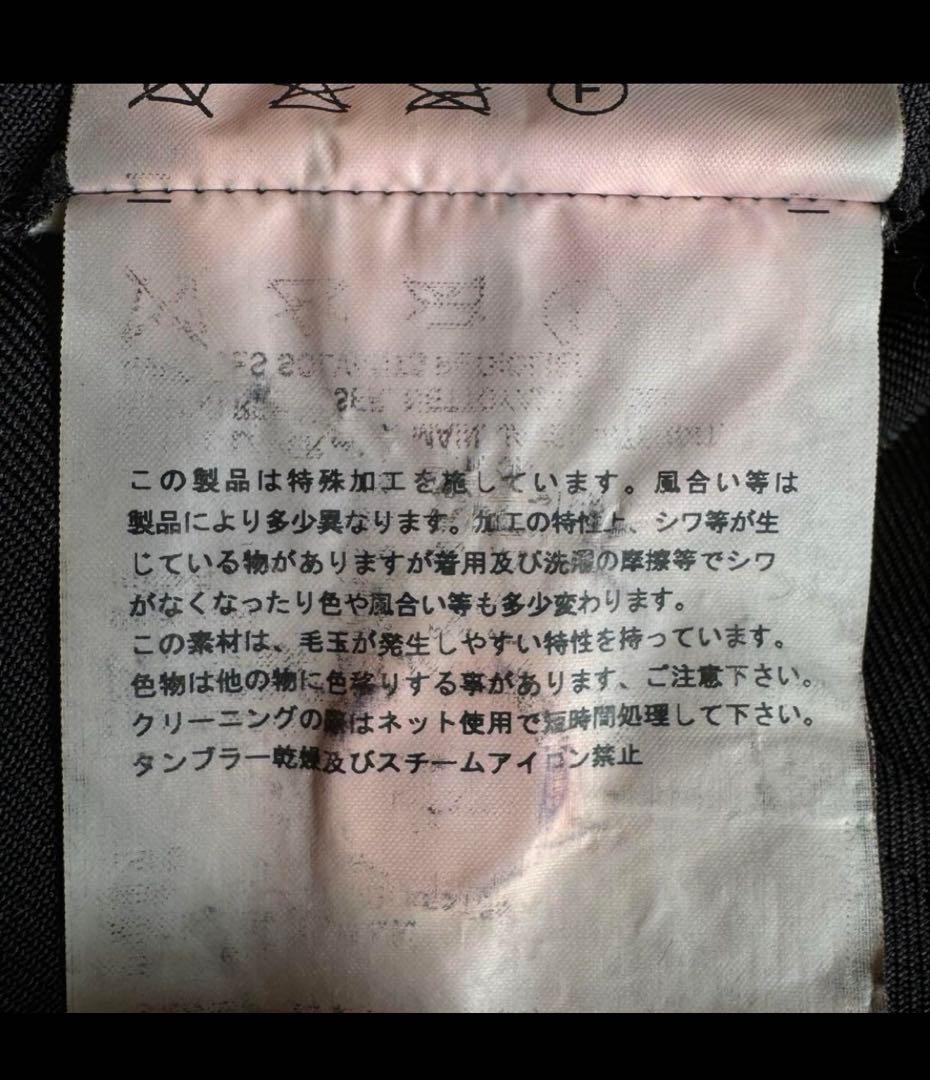 F
この製品は特殊加工を施しています。風合い等は
製品により多少異なります。加工の特性上、シワ等が生
じている物がありますが着用及び洗濯の摩擦等でシワ
がなくなったり色や風合い等も多少変わります。
この素材は、毛玉が発生しやすい特性を持っています。
色物は他の物に色移りする事があります、ご注意下さい。
クリーニングの際はネット使用で短時間処理して下さい。
タンブラー乾燥及びスチームアイロン禁止